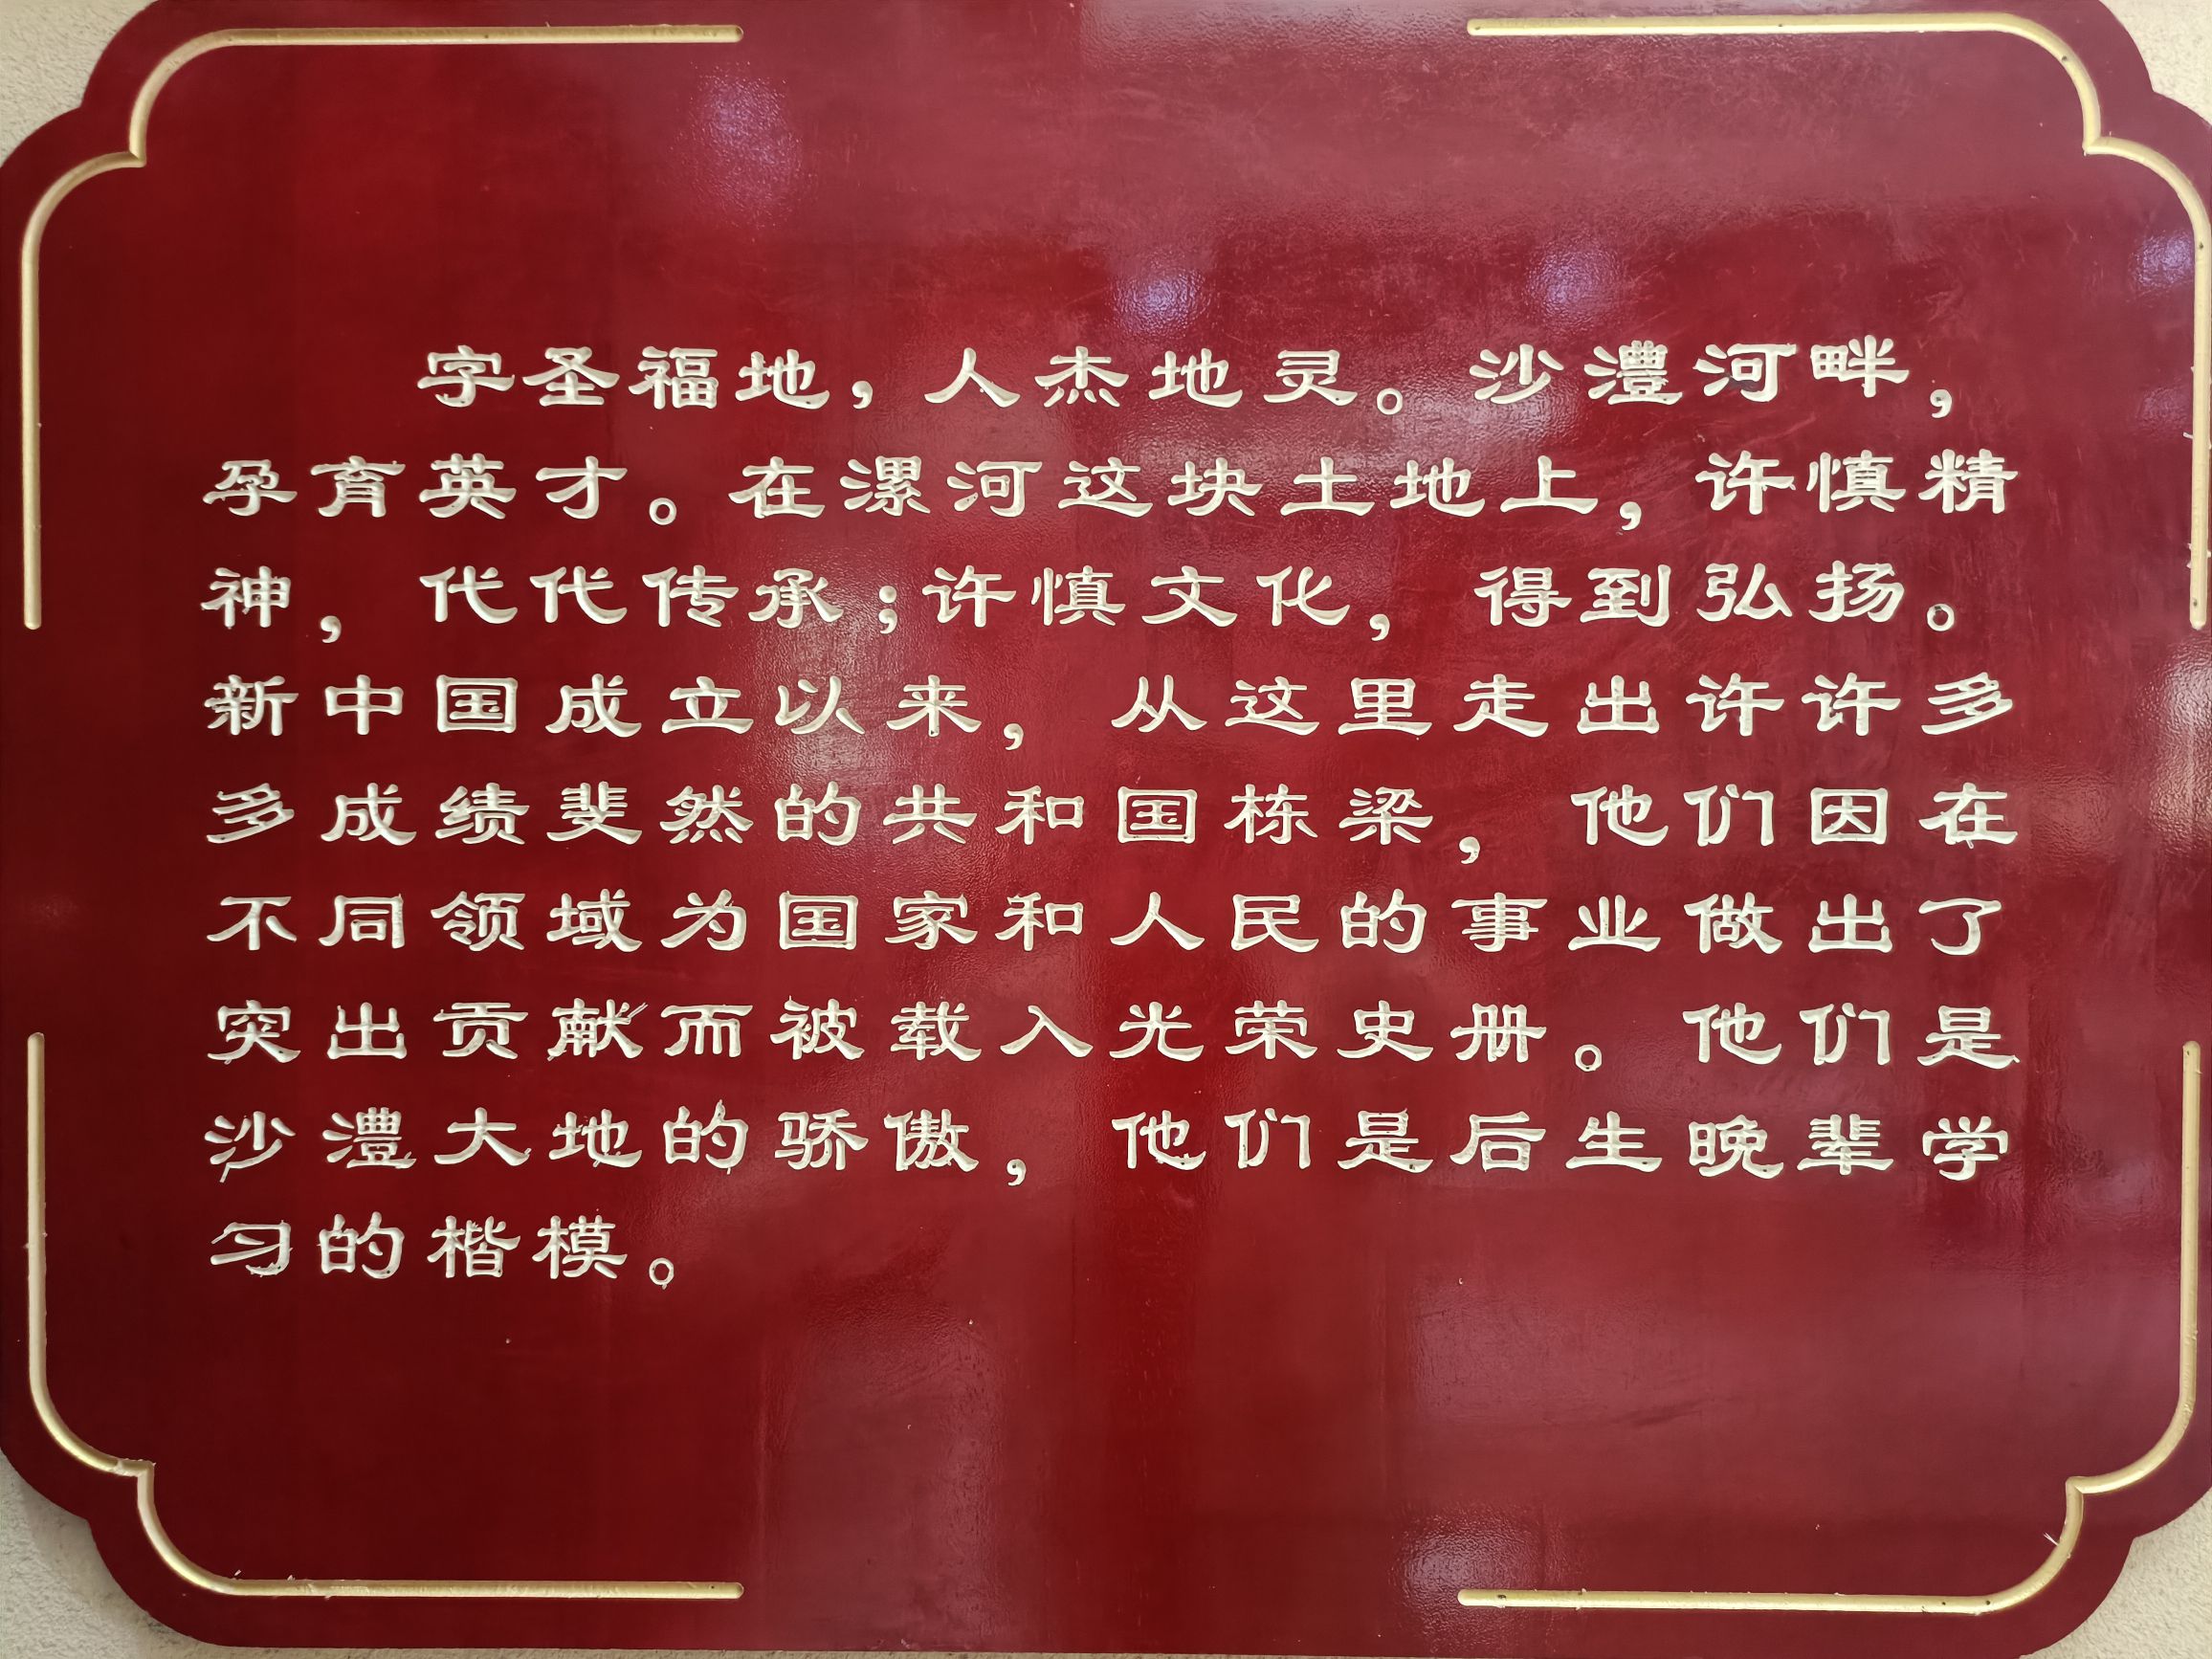 字圣福地，人杰地灵。沙澧河畔，
孕育英才。在漯河这块土地上，许慎精
神，代代传承；许慎文化，得到弘扬。
新中国成立以来，从这里走出许许多
多成绩斐然的共和国栋梁，他们因在
不同领域为国家和人民的事业做出了
突出贡献而被载入光荣史册。他们是
沙澧大地的骄傲，他们是后生晚辈学
习的楷模。